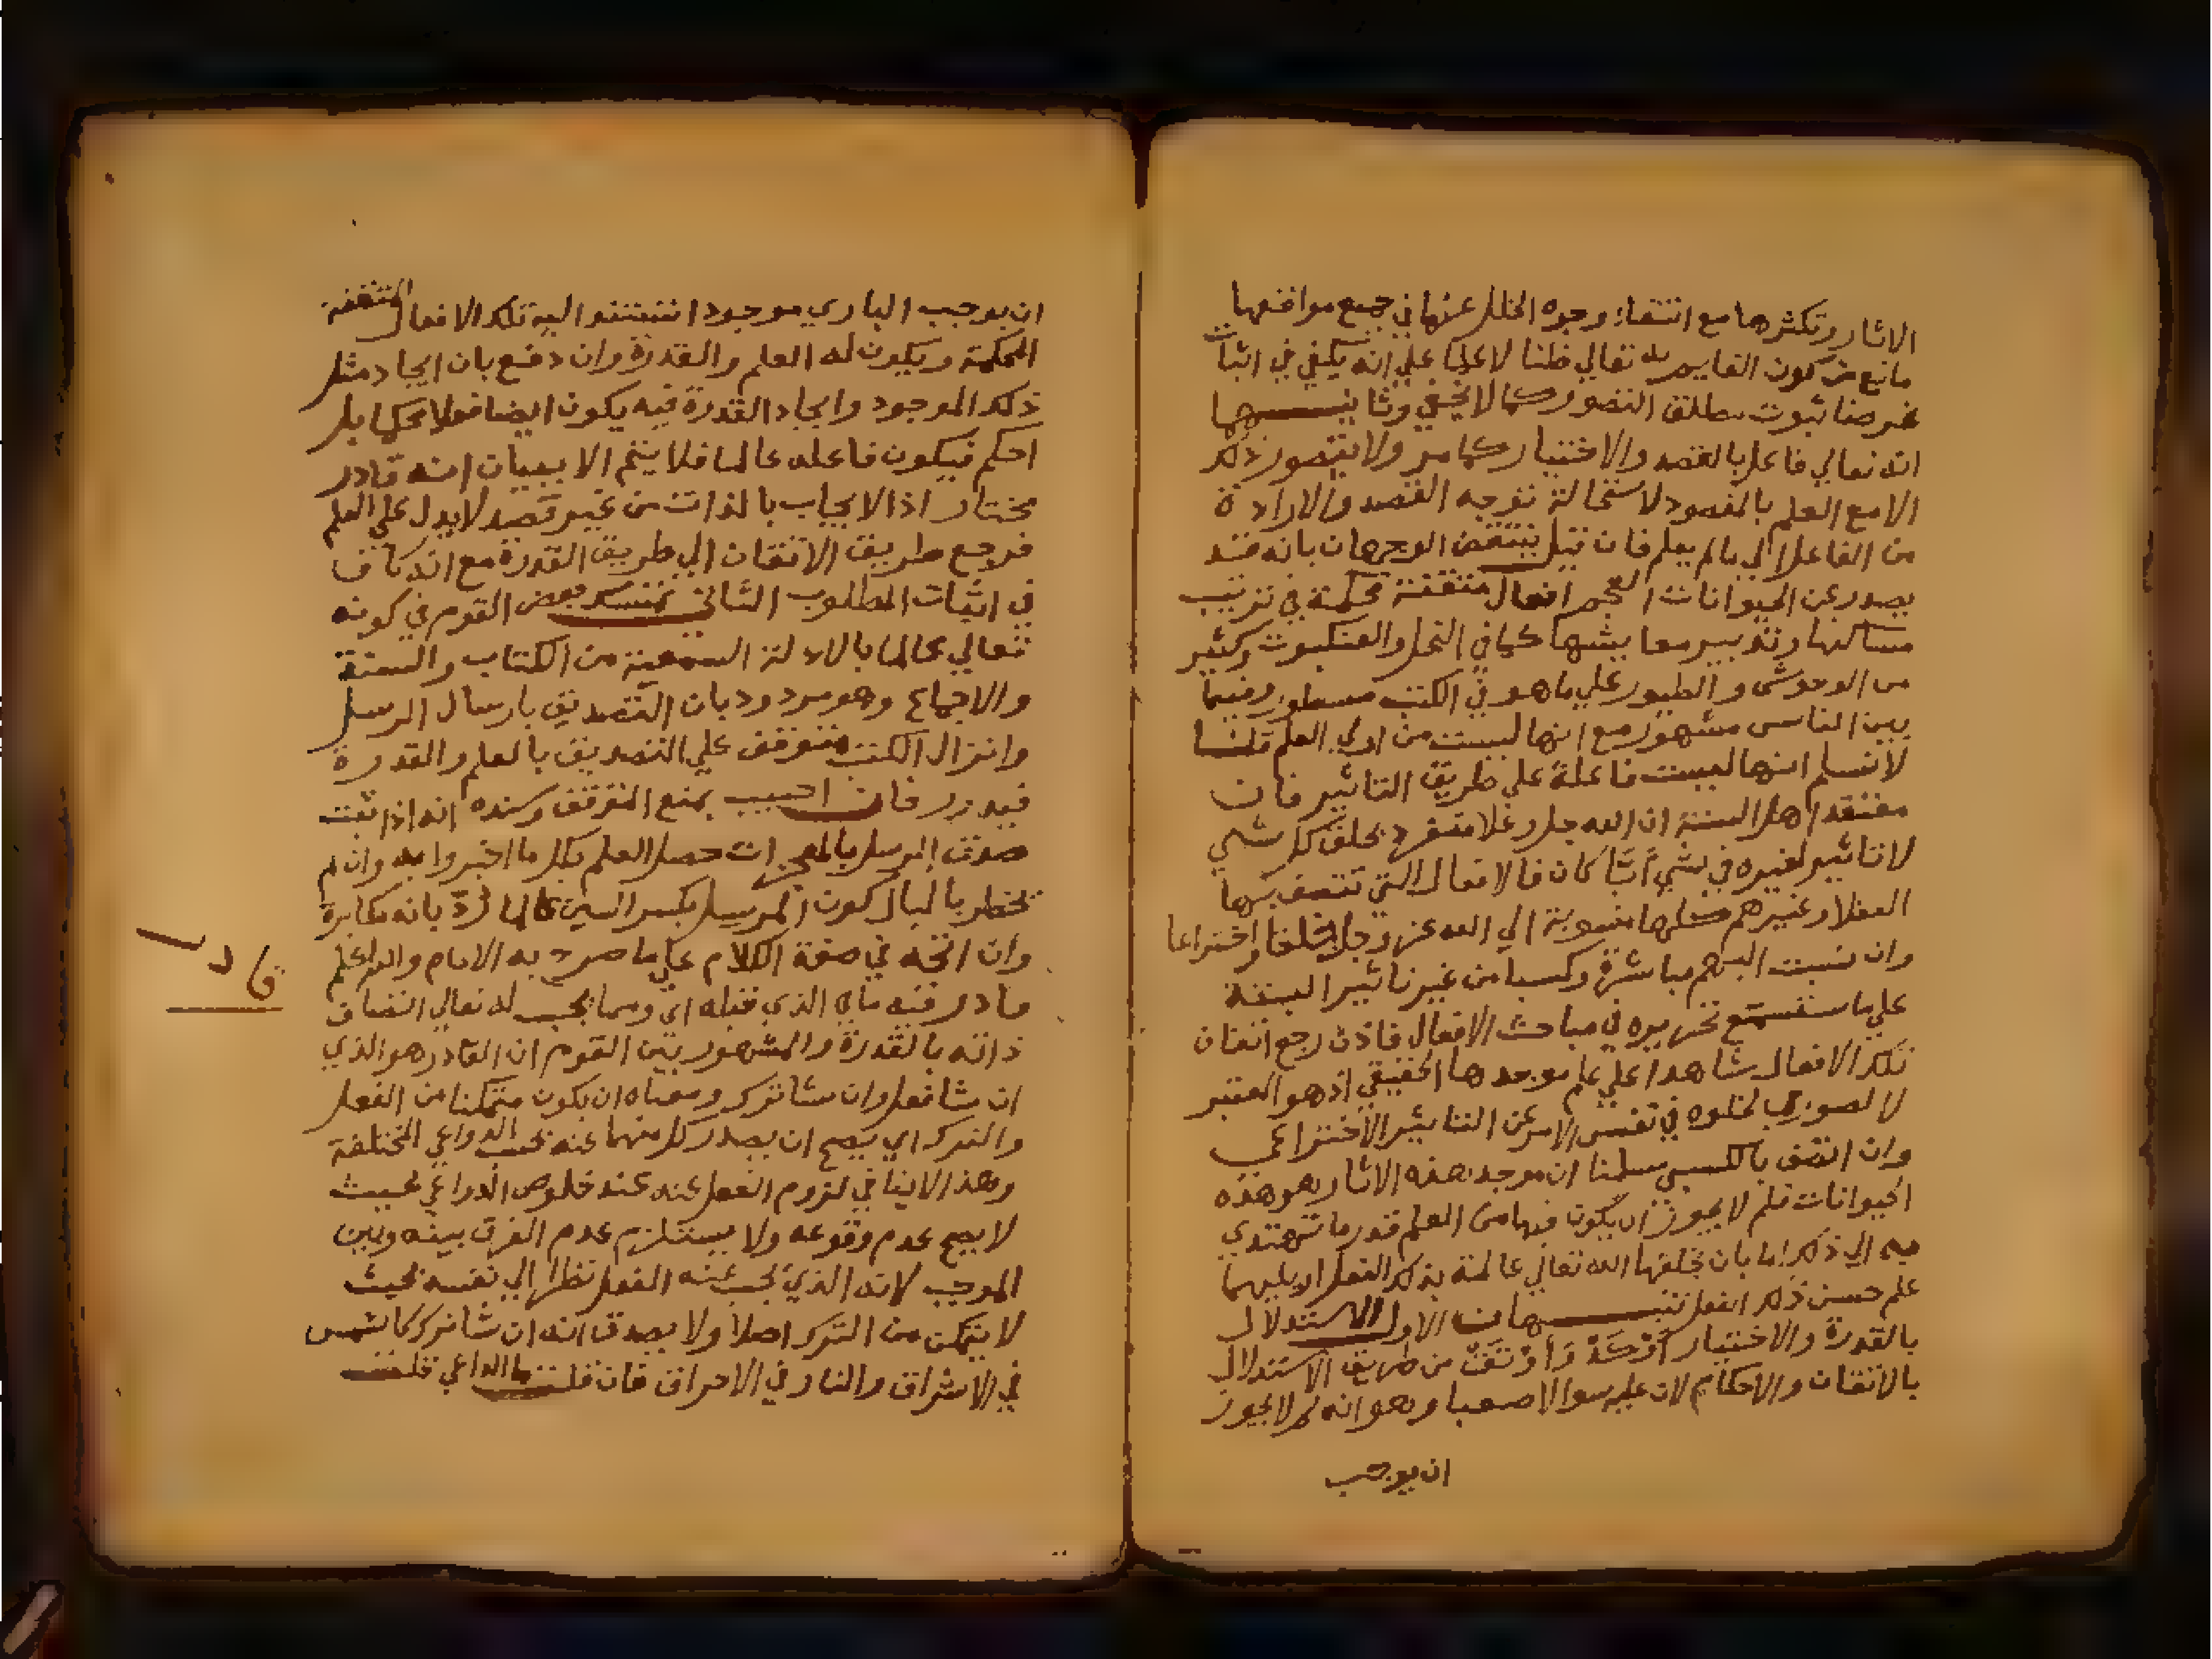 الاثار وتكثرها مع انتفاء وجوه الخلل عنها في جميع مواقعها
مانع من كون القايم به تعالي ظنا لا علما علي انه يكفي في اثبات
غرضنا ثبوت مطلق التصور كما لا يخفي وثانيهما
انه تعالي فاعل بالقصد والاختيار كما مر ولا يتصور ذلك
الا مع العلم بالمقصود لاستحالة توجه القصد والارادة
من الفاعل الي ما لم يعلم فان قيل ينتقض الوجهان بانه قد
يصدر عن الحيوانات العجم افعال متقنة محكمة في ترتيب
مساكنها وتدبير معايشها كما في النحل والعنكبوت وكثير
من الوحوش والطيور علي ما هو في الكتب مسطور وفيما
بين الناس مشهور مع انها ليست من اولي العلم قلنا
لا نسلم انها ليست فاعلة علي طريق التاثير فان
معتقد اهل السنة ان الله جل وعلا متفرد بخلق كل شي
لا تاثير لغيره في شي ايّا كان فالافعال التي تتصف بها
العقلا وغيرهم كلها منسوبة الي الله عز وجل خلقا واختراعا
وان نسبت اليهم مباشرة وكسبا من غير تاثير البتة
علي ما ستسمع تحريره في مباحث الافعال فاذن رجع اتقان
تلك الافعال شاهدا علي علم موجدها الحقيقي اذ هو المعتبر
لا الصوري لخلوه في نفس الامر عن التاثير الاختراعي
وان اتصف بالكسبي سلمنا ان موجد هذه الاثار هو هذه
الحيوانات فلم لا يجوز ان يكون فيها من العلم قدر ما تهتدي
به الي ذكر اما بان يخلقها الله تعالي عالمة بذلك الفعل او يلهمها
علم حسن ذلك الفعل تنبيهان الاول الاستدلال
بالقدرة والاختيار اوكد واوثق من طريق الاستدلال
بالاتقان والاحكام لان عليه سوالا صعبا وهو انه لم لا يجوز
ان يوجب
ان يوجب الباري موجودا تستند اليه تلك الافعال المتقنة
المحكمة ويكون له العلم والقدرة وان دفع بان ايجاد مثل
ذلك الموجود وايجاد القدرة فيه يكون ايضا فعلا محكما بل
احكم فيكون فاعله عالما فلا يتم الا ببيان انه قادر
مختار اذ الايجاب بالذات من غير قصد لا يدل علي العلم
فرجع طريق الاتقان الي طريق القدرة مع انه كاف
في اثبات المطلوب الثاني تمسك بعض القوم في كونه
تعالي عالما بالادلة السمعية من الكتاب والسنة
والاجماع وهو مردود بان التصديق بارسال الرسل
وانزال الكتب متوقف علي التصديق بالعلم والقدرة
فيدور فان اجيب بمنع التوقف وسنده انه اذا ثبت
صدق الرسل بالمعجزات حصل العلم بكل ما اخبروا به وان لم
يخطر بالبال كون المرسل بكسر السين عالما رُدّ بانه مكابرة
وان اتجه في صفة الكلام علي ما صرح به الامام والله اعلم
قادر
قادر فيه ما في الذي قبله اي ومما يجب له تعالي اتصاف
ذاته بالقدرة والمشهور بين القوم ان القادر هو الذي
ان شا فعل وان شا ترك ومعناه ان يكون متمكنا من الفعل
والترك اي يصح ان يصدر كل منهما عنه بحسب الدواعي المختلفة
وهذا لا ينافي لزوم الفعل عنه عند خلوص الدواعي بحيث
لا يصح عدم وقوعه ولا يستلزم عدم الفرق بينه وبين
الموجب لانه الذي يجب عنه الفعل نظرا الي نفسه بحيث
لا يتمكن من الترك اصلا ولا يصدق انه ان شا ترك كالشمس
في الاشراق والنار في الاحراق فان قلت ما الداعي قلت